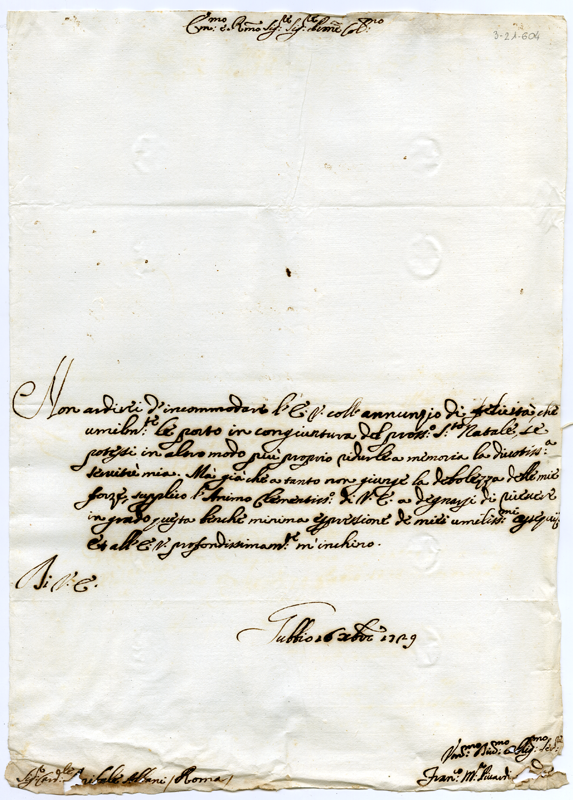 Em:mo e Rmo Sig:re Sig:re
3-21-604
Non ardirei d'incommodare l'E.V. coll'annunzio di felicità che
umilm:te le porto in congiuntura del pross:o S:to Natale, se
potessi in altro modo più proprio ridurle a memoria la divotiss:a
servitù mia. Mà già che a tanto non giunge la debolezza delle mie
forze, supplico l'Animo Clementiss:o di V.E. a degnarsi di ricevere
in grado questa benchè minima espressione de miei umiliss:mi ossequij
Et all'E.V. profondissimam:te m'inchino.
Di V.E.
Gubbio 16 xbre 1729
Sig:r Card:le Annibale Albani (Roma)
Fran:co M:a